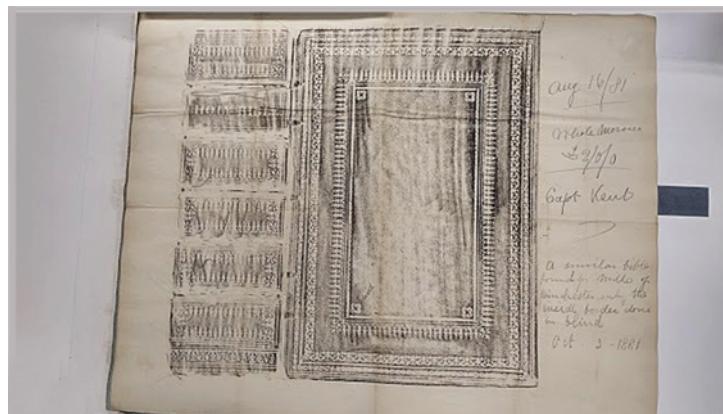 Aug 16/81
Whole Morocco
£2/0/0
Capt Kent
A similar bible
bound for Mills of
Winchester only the
inside border done
in blind
Oct 3 - 1881